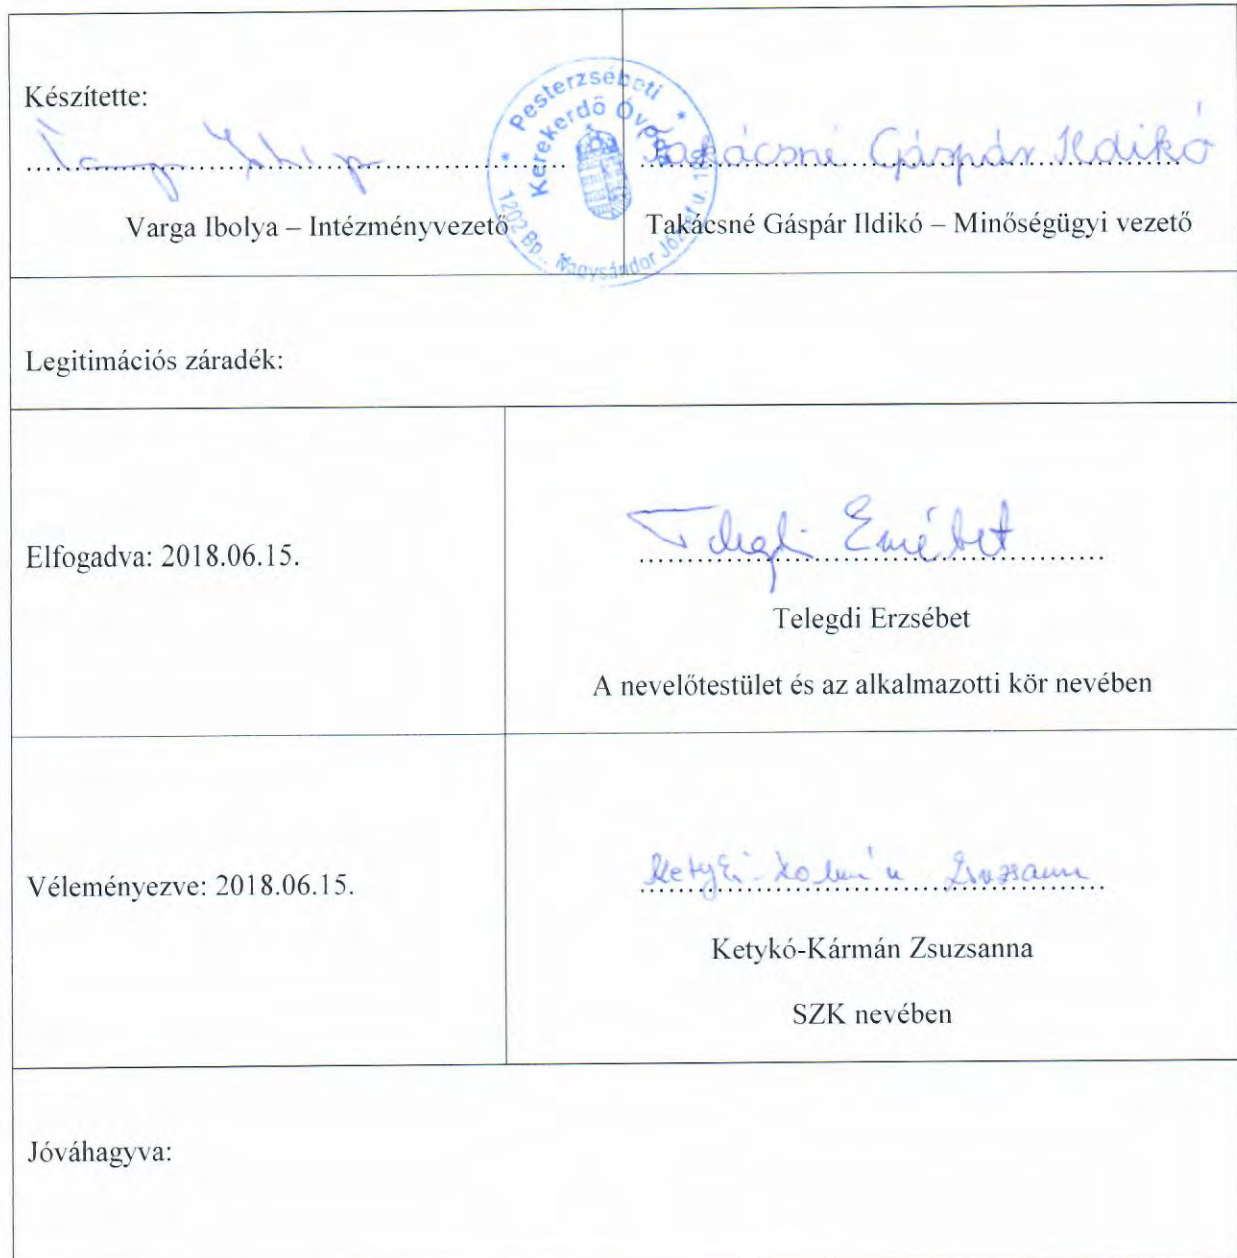 Készítette:
Pesterzsébeti
Kerekerdő Óvoda
1202 Bp., Nagysándor József u.
Takácsné Gáspár Ildikó
Varga Ibolya – Intézményvezető
Takácsné Gáspár Ildikó – Minőségügyi vezető
Legitimációs záradék:
Elfogadva: 2018.06.15.
Telegdi Erzsébet
Telegdi Erzsébet
A nevelőtestület és az alkalmazotti kör nevében
Véleményezve: 2018.06.15.
Ketykó-Kármán Zsuzsanna
SZK nevében
Jóváhagyva: